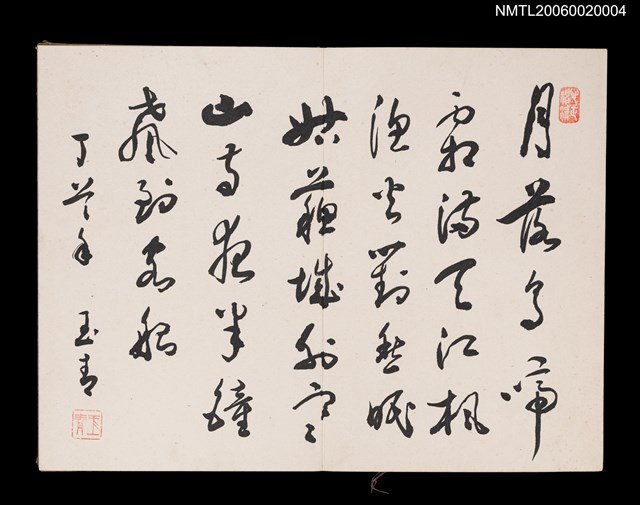 NMTL20060020004
月落烏啼
霜滿天江楓
漁火對愁眠
姑蘇城外寒
山寺夜半鐘
聲到客船
丁 年 玉青
玉青